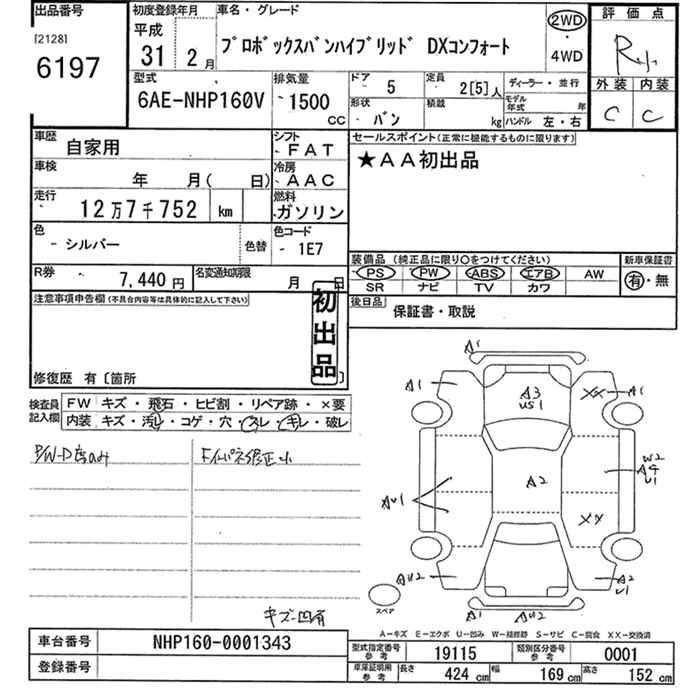 出品番号
[2128]
6197
初度登録年月
平成
31 2月
車名・グレード
プロボックスバンハイブリッド DXコンフォート
2WD
・
4WD
評価点
R小
外装 内装
C C
型式
6AE-NHP160V
排気量
1500
CC
ドア 5
定員 2[5]人
ディーラー・並行
形状 バン
積載 kg
モデル年式 年
ハンドル 左・右
車歴 自家用
シフト FAT
セールスポイント(正常に機能するものに限ります)
★AA初出品
車検 年 月( 日)
冷房 AAC
走行 12万7千752 km
燃料 ガソリン
色 シルバー
色替
色コード 1E7
装備品 (純正品に限り○をつけてください)
新車保証書
PS PW ABS エアB AW
有・無
SR ナビ TV カワ
R券 7,440円
名変通知期限 月 日
後日品
保証書・取説
注意事項申告欄(不具合内容等は具体的に記入して下さい)
初出品
修復歴 有〔箇所 〕
検査員記入欄
FW キズ・飛石・ヒビ割・リペア跡・×要
内装 キズ・汚レ・コゲ・穴・スレ・キレ・破レ
キズ・凹有
A1
A1
A3
US1
XX
A1
W2
A4
U1
A2
AU1
XX
AU2
A2
U1
スペア
A1
AU2
A-キズ E-エクボ U-凹み W-補修跡 S-サビ C-腐食 XX-交換済
車台番号 NHP160-0001343
登録番号
型式指定番号 参考 19115
類別区分番号 参考 0001
車庫証明用 参考 長さ 424 cm 幅 169 cm 高さ 152 cm